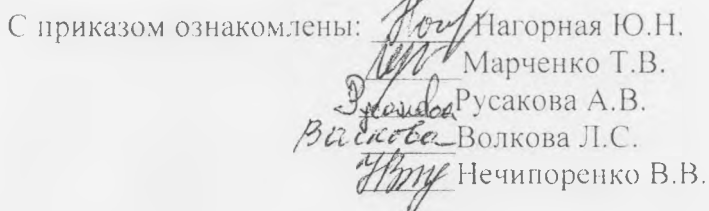 С приказом ознакомлены: Нагорная Ю.Н.
Марченко Т.В.
Русакова А.В.
Волкова Л.С.
Нечипоренко В.В.